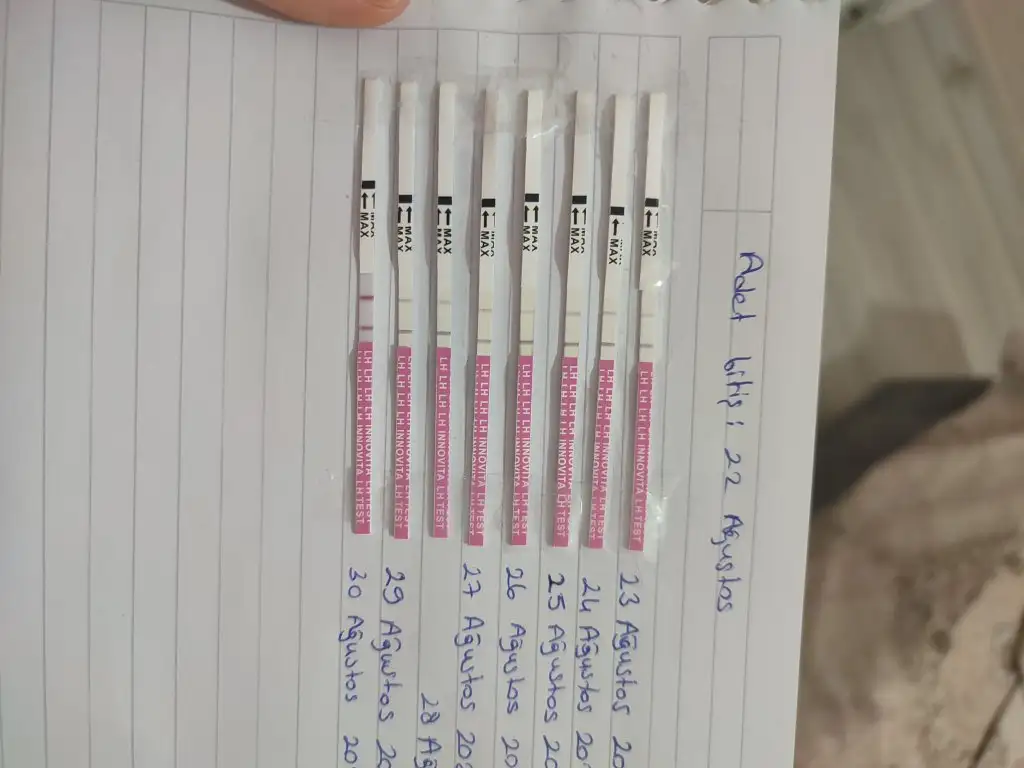 Adet bitiş: 22 Ağustos
23 Ağustos 20
24 Ağustos 20
25 Ağustos 20
26 Ağustos 20
27 Ağustos 202
28 Ağ
29 Ağustos 20
30 Ağustos 20
MAX
LH LH LH INNOVITA LH TEST
MAX
LH LH LH INNOVITA LH TEST
MAX
LH LH LH INNOVITA LH TEST
MAX
LH LH LH INNOVITA LH TEST
MAX
LH LH LH LH INNOVITA LH TEST
MAX
LH LH LH INNOVITA LH TEST
MAX
LH LH LH INNOVITA LH TEST
MAX
LH LH LH INNOVITA LH TEST